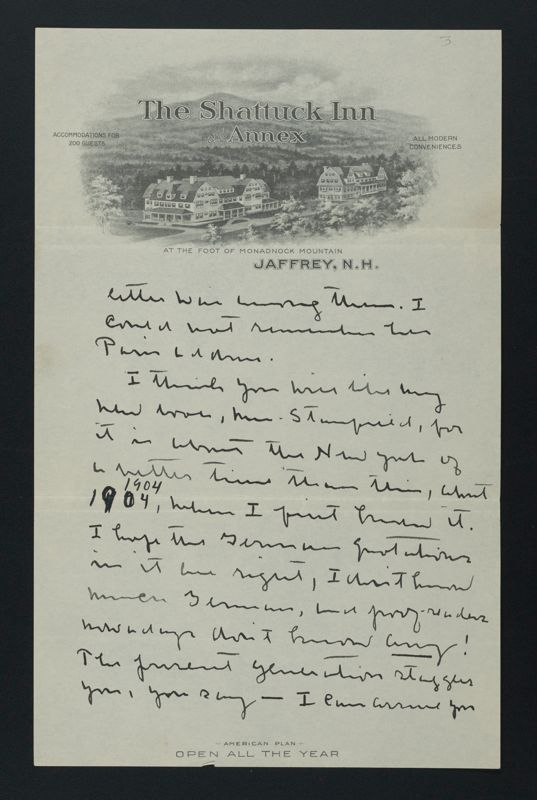 3
The Shattuck Inn
and Annex
ACCOMMODATIONS FOR
200 GUESTS
ALL MODERN
CONVENIENCES
AT THE FOOT OF MONADNOCK MOUNTAIN
JAFFREY, N.H.
letter was among them. I
could not remember her
Paris address.
I think you will like my
new book, Mr. Stanfield, for
it is about the New York of
a better time than this, about
1904
1904, when I first knew it.
I hope the German quotations
in it are right, I don't know
much German, and proof-readers
nowadays don't know any!
The present generation staggers
you, you say — I can assure you
AMERICAN PLAN
OPEN ALL THE YEAR